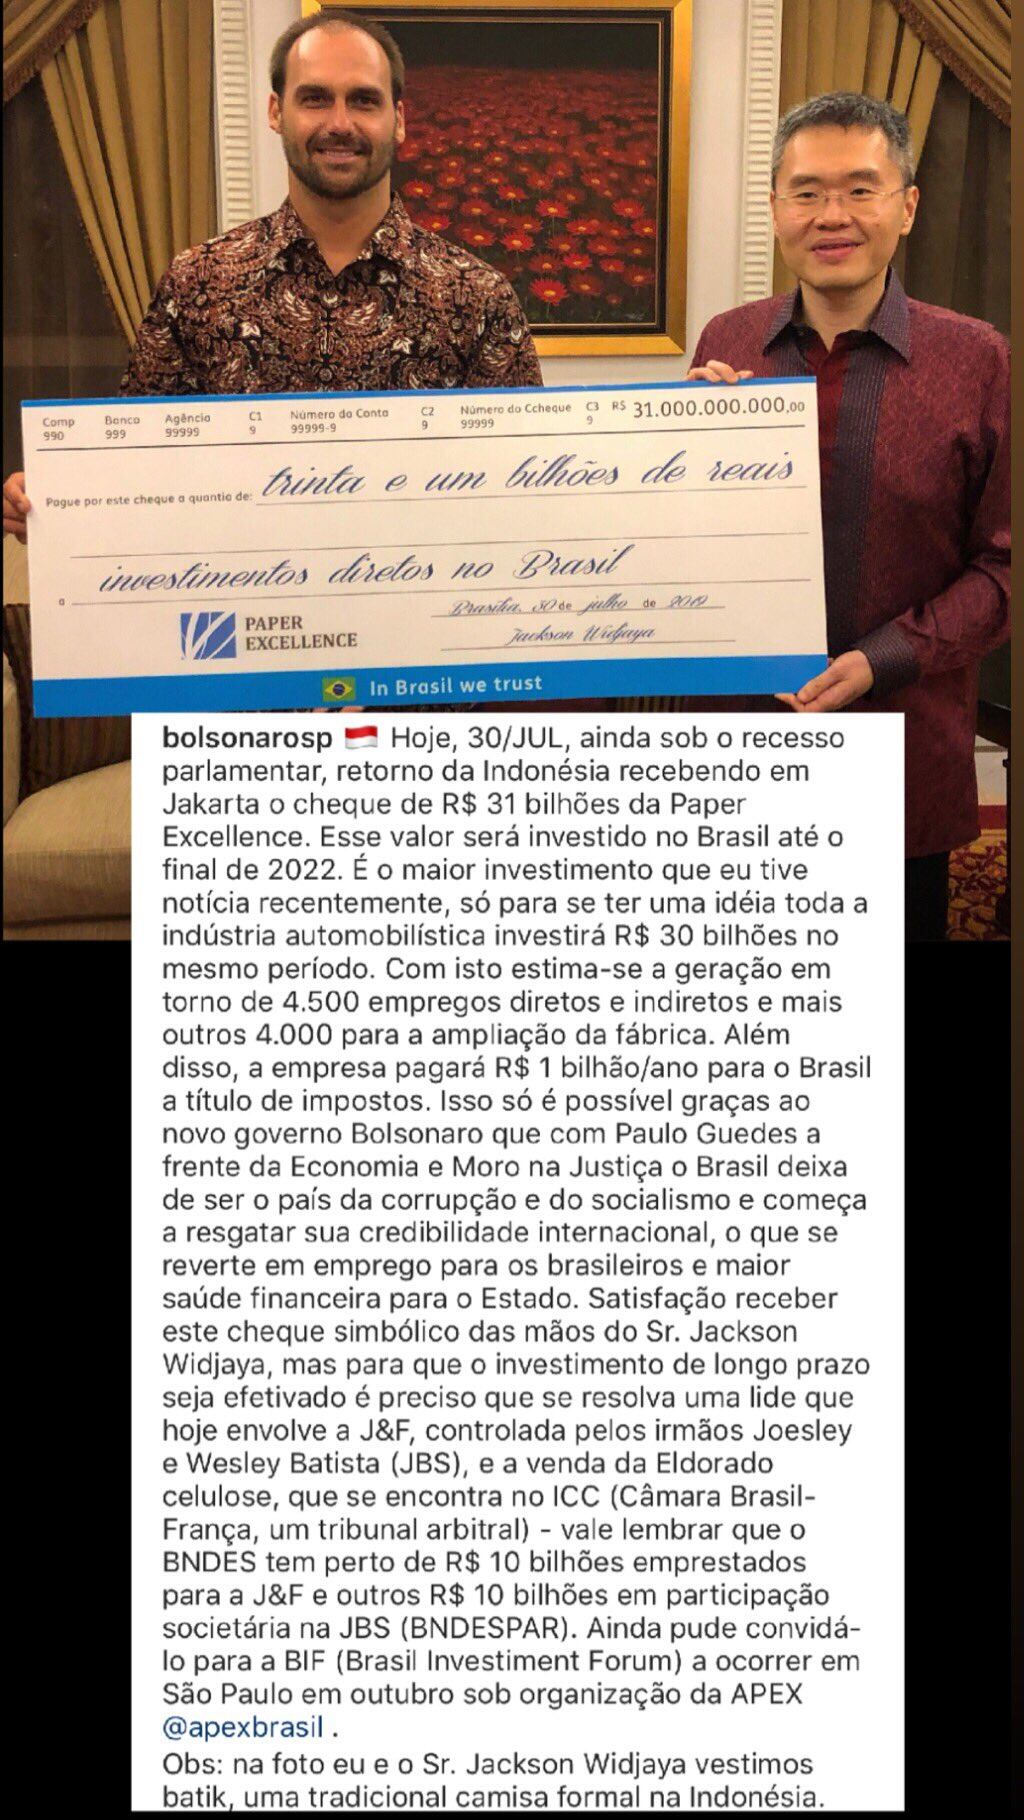 Comp Banco Agência C1 Número da Conta C2 Número do Ccheque C3 R$ 31.000.000.000,00
990 999 99999 9 99999-9 9 99999 9
Pague por este cheque a quantia de: trinta e um bilhões de reais
a investimentos diretos no Brasil
Brasília, 30 de julho de 2019
Jackson Widjaya
PAPER
EXCELLENCE
In Brasil we trust
bolsonarosp 🇮🇩 Hoje, 30/JUL, ainda sob o recesso
parlamentar, retorno da Indonésia recebendo em
Jakarta o cheque de R$ 31 bilhões da Paper
Excellence. Esse valor será investido no Brasil até o
final de 2022. É o maior investimento que eu tive
notícia recentemente, só para se ter uma idéia toda a
indústria automobilística investirá R$ 30 bilhões no
mesmo período. Com isto estima-se a geração em
torno de 4.500 empregos diretos e indiretos e mais
outros 4.000 para a ampliação da fábrica. Além
disso, a empresa pagará R$ 1 bilhão/ano para o Brasil
a título de impostos. Isso só é possível graças ao
novo governo Bolsonaro que com Paulo Guedes a
frente da Economia e Moro na Justiça o Brasil deixa
de ser o país da corrupção e do socialismo e começa
a resgatar sua credibilidade internacional, o que se
reverte em emprego para os brasileiros e maior
saúde financeira para o Estado. Satisfação receber
este cheque simbólico das mãos do Sr. Jackson
Widjaya, mas para que o investimento de longo prazo
seja efetivado é preciso que se resolva uma lide que
hoje envolve a J&F, controlada pelos irmãos Joesley
e Wesley Batista (JBS), e a venda da Eldorado
celulose, que se encontra no ICC (Câmara Brasil-
França, um tribunal arbitral) - vale lembrar que o
BNDES tem perto de R$ 10 bilhões emprestados
para a J&F e outros R$ 10 bilhões em participação
societária na JBS (BNDESPAR). Ainda pude convidá-
lo para a BIF (Brasil Investiment Forum) a ocorrer em
São Paulo em outubro sob organização da APEX
@apexbrasil .
Obs: na foto eu e o Sr. Jackson Widjaya vestimos
batik, uma tradicional camisa formal na Indonésia.